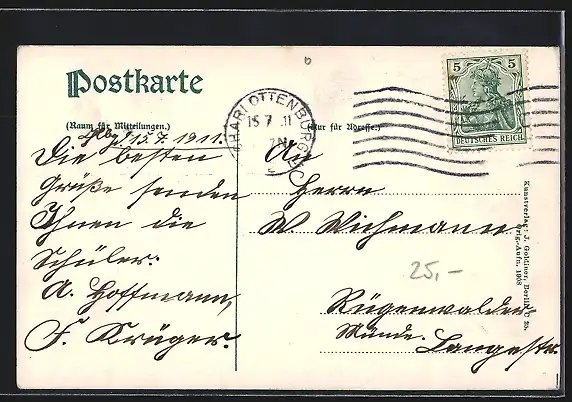 Postkarte
(Raum für Mitteilungen.)
(Nur für Adresse.)
CHARLOTTENBURG
15 7 11
7N
5 5
DEUTSCHES REICH
15.7.1911.
Die besten
Grüße senden
Ihnen die
Schüler:
A. Hoffmann,
F. Krüger.
An
Herrn
W Wichmann
Rügenwalder
Münde.
Langestr.
25,-
Kunstverlag: J. Goldiner, Berlin C 25.
Orig.-Aufn. 1908